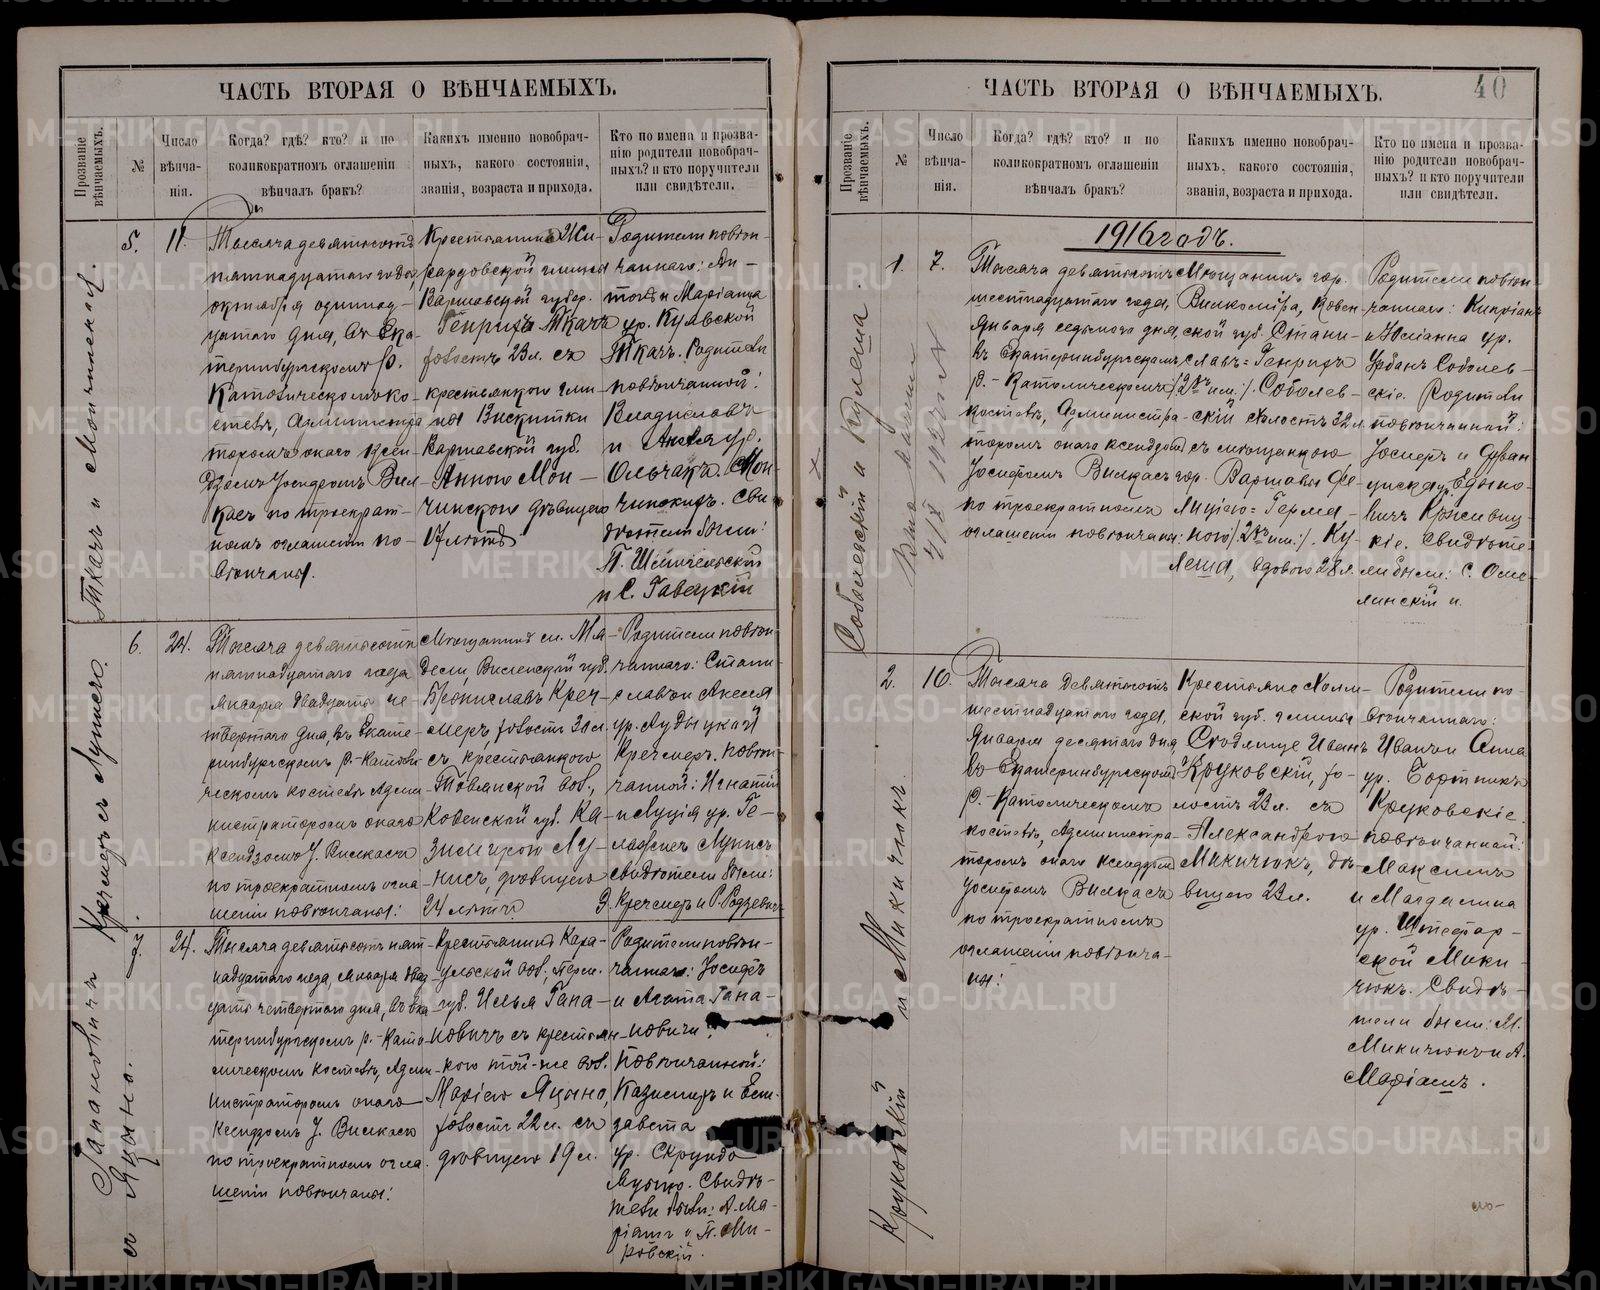 ЧАСТЬ ВТОРАЯ О ВѢНЧАЕМЫХЪ.
Прозваніе вѣнчаемыхъ.
№
Число
вѣнча-
нія.
Когда? гдѣ? кто? и по
коликократномъ оглашеніи
вѣнчалъ бракъ?
Какихъ именно новобрач-
ныхъ, какого состоянія,
званія, возраста и прихода.
Кто по имени и прозва-
нію родители новобрач-
ныхъ? и кто поручители
или свидѣтели.
Ткачъ и Мончинской.
5.
11.
Тысяча девятьсотъ
пятнадцатаго года,
октября одиннад-
цатаго дня, въ Ека-
теринбургскомъ р.
Католическомъ ко-
стелѣ, Администра
торомъ онаго Ксен-
дзомъ Іосифомъ Вил-
касъ по троекрат-
номъ оглашеніи по-
вѣнчаны.
Крестьянинъ Жи-
рардовской гмины
Варшавской губер.
Генрихъ Ткачъ
холостъ 23 л. съ
крестьянкою гми-
ны Вискитки
Варшавской губ.
Анною Мон-
чинскою дѣвицею
17 лѣтъ
Родители повѣн-
чаннаго: Ан-
тонъ и Маріанна
ур. Кулвской
Ткачъ. Родители
повѣнчанной:
Владиславъ
и Анеля ур.
Ольчакъ Мон-
чинскихъ. Сви-
дѣтели были:
П. Шимчельскій
и С. Гавецкій
Кречмеръ съ Лунисъ.
6.
24.
Тысяча девятьсотъ
пятнадцатаго года
Января двадцать че-
твертаго дня, въ Екате-
ринбургскомъ р.-Католи-
ческомъ костелѣ Адми-
нистраторомъ онаго
Ксендзомъ І. Вилкасъ
по троекратномъ огла-
шеніи повѣнчаны:
Мѣщанинъ м. Мя-
дели, Виленской губ.
Брониславъ Креч-
меръ, холостъ 30 л.
съ крестьянкою
Товянской вол.,
Ковенской губ. Ка-
зимирою Лу-
нисъ, дѣвицею
24 лѣтъ
Родители повѣн-
чаннаго: Стани-
славъ и Анеля
Кречмеръ. Повѣн-
чанной: Игнатій
и Луція ур. Ге-
Лунисъ
свидѣтели были:
Э. Кречмеръ и Р. Родзевичъ
Гапановичъ
съ Яцыно.
7.
24.
Тысяча девятьсотъ пят-
надцатаго года, января двад-
цать четвертаго дня, въ Ека-
теринбургскомъ р.-Като-
лическомъ костелѣ, Адми-
нистраторомъ онаго
Ксендзомъ І. Вилкасъ
по троекратномъ огла-
шеніи повѣнчаны:
Крестьянинъ Кара-
гульской вол., Перм.
губ. Илья Гапа-
новичъ съ крестьян-
кою той-же вол.
Маріею Яцыно,
холостъ 22 л. съ
дѣвицею 19 л.
Родители повѣн-
чаннаго: Іосифъ
и Агата Гапа-
новичи.
Повѣнчанной:
Казиміръ и Ели-
завета
ур. Скрундо
Яцыно. Свидѣ-
тели были: А. Ма-
ріамъ и П. Ми-
ровскій.
ЧАСТЬ ВТОРАЯ О ВѢНЧАЕМЫХЪ.
40
Прозваніе вѣнчаемыхъ.
№
Число
вѣнча-
нія.
Когда? гдѣ? кто? и по
коликократномъ оглашеніи
вѣнчалъ бракъ?
Какихъ именно новобрач-
ныхъ, какого состоянія,
званія, возраста и прихода.
Кто по имени и прозва-
нію родители новобрач-
ныхъ? и кто поручители
или свидѣтели.
1916 годъ.
Соболевскій и Кулеша.
1.
7.
Тысяча девятьсотъ
шестнадцатаго года,
Января седьмого дня,
въ Екатеринбургскомъ
р.-Католическомъ
костелѣ, Администра-
торомъ онаго ксендзомъ
Іосифомъ Вилкасъ
по троекратномъ
оглашеніи повѣнчаны:
Мѣщанинъ гор.
Вилкоміра, Ковен-
ской губ. Стани-
славъ=Генрихъ
/2хъ им:/. Соболев-
скій холостъ 32 л.
съ мѣщанкою
гор. Варшавы Фе-
лиціею=Герми-
ною /2хъ им:/. Ку-
леша, вдовою 28 л.
Родители повѣн-
чаннаго: Кипріанъ
и Юліанна ур.
Урбанъ Соболев-
скіе. Родители
повѣнчанной:
Іосифъ и Фран-
циска ур. Ядыно-
вичъ
кіе. Свидѣте-
ли были: С. Оме-
линскій и.
Круковскій и Микичюкъ.
2.
10.
Тысяча девятьсотъ
шестнадцатаго года,
Января десятаго дня
въ Екатеринбургскомъ
р.-Католическомъ
костелѣ, Администра-
торомъ онаго ксендзомъ
Іосифомъ Вилкасъ
по троекратномъ
оглашеніи повѣнча-
ны:
Крестьяне Холм-
ской губ. гмины
Сѣдлище Иванъ
Круковскій, хо-
лостъ 23 л. съ
Александрою
Микичюкъ, дѣ-
вицею 23 л.
Родители по-
вѣнчаннаго:
Иванъ и Анна
ур. Бортникъ
Круковскіе.
повѣнчанной:
Максимъ
и Магдалина
ур. Штефар-
ской Мики-
чюкъ. Свидѣ-
тели были: М.
Микичюкъ и А.
Маріамъ.
METRIKI.GASO-URAL.RU